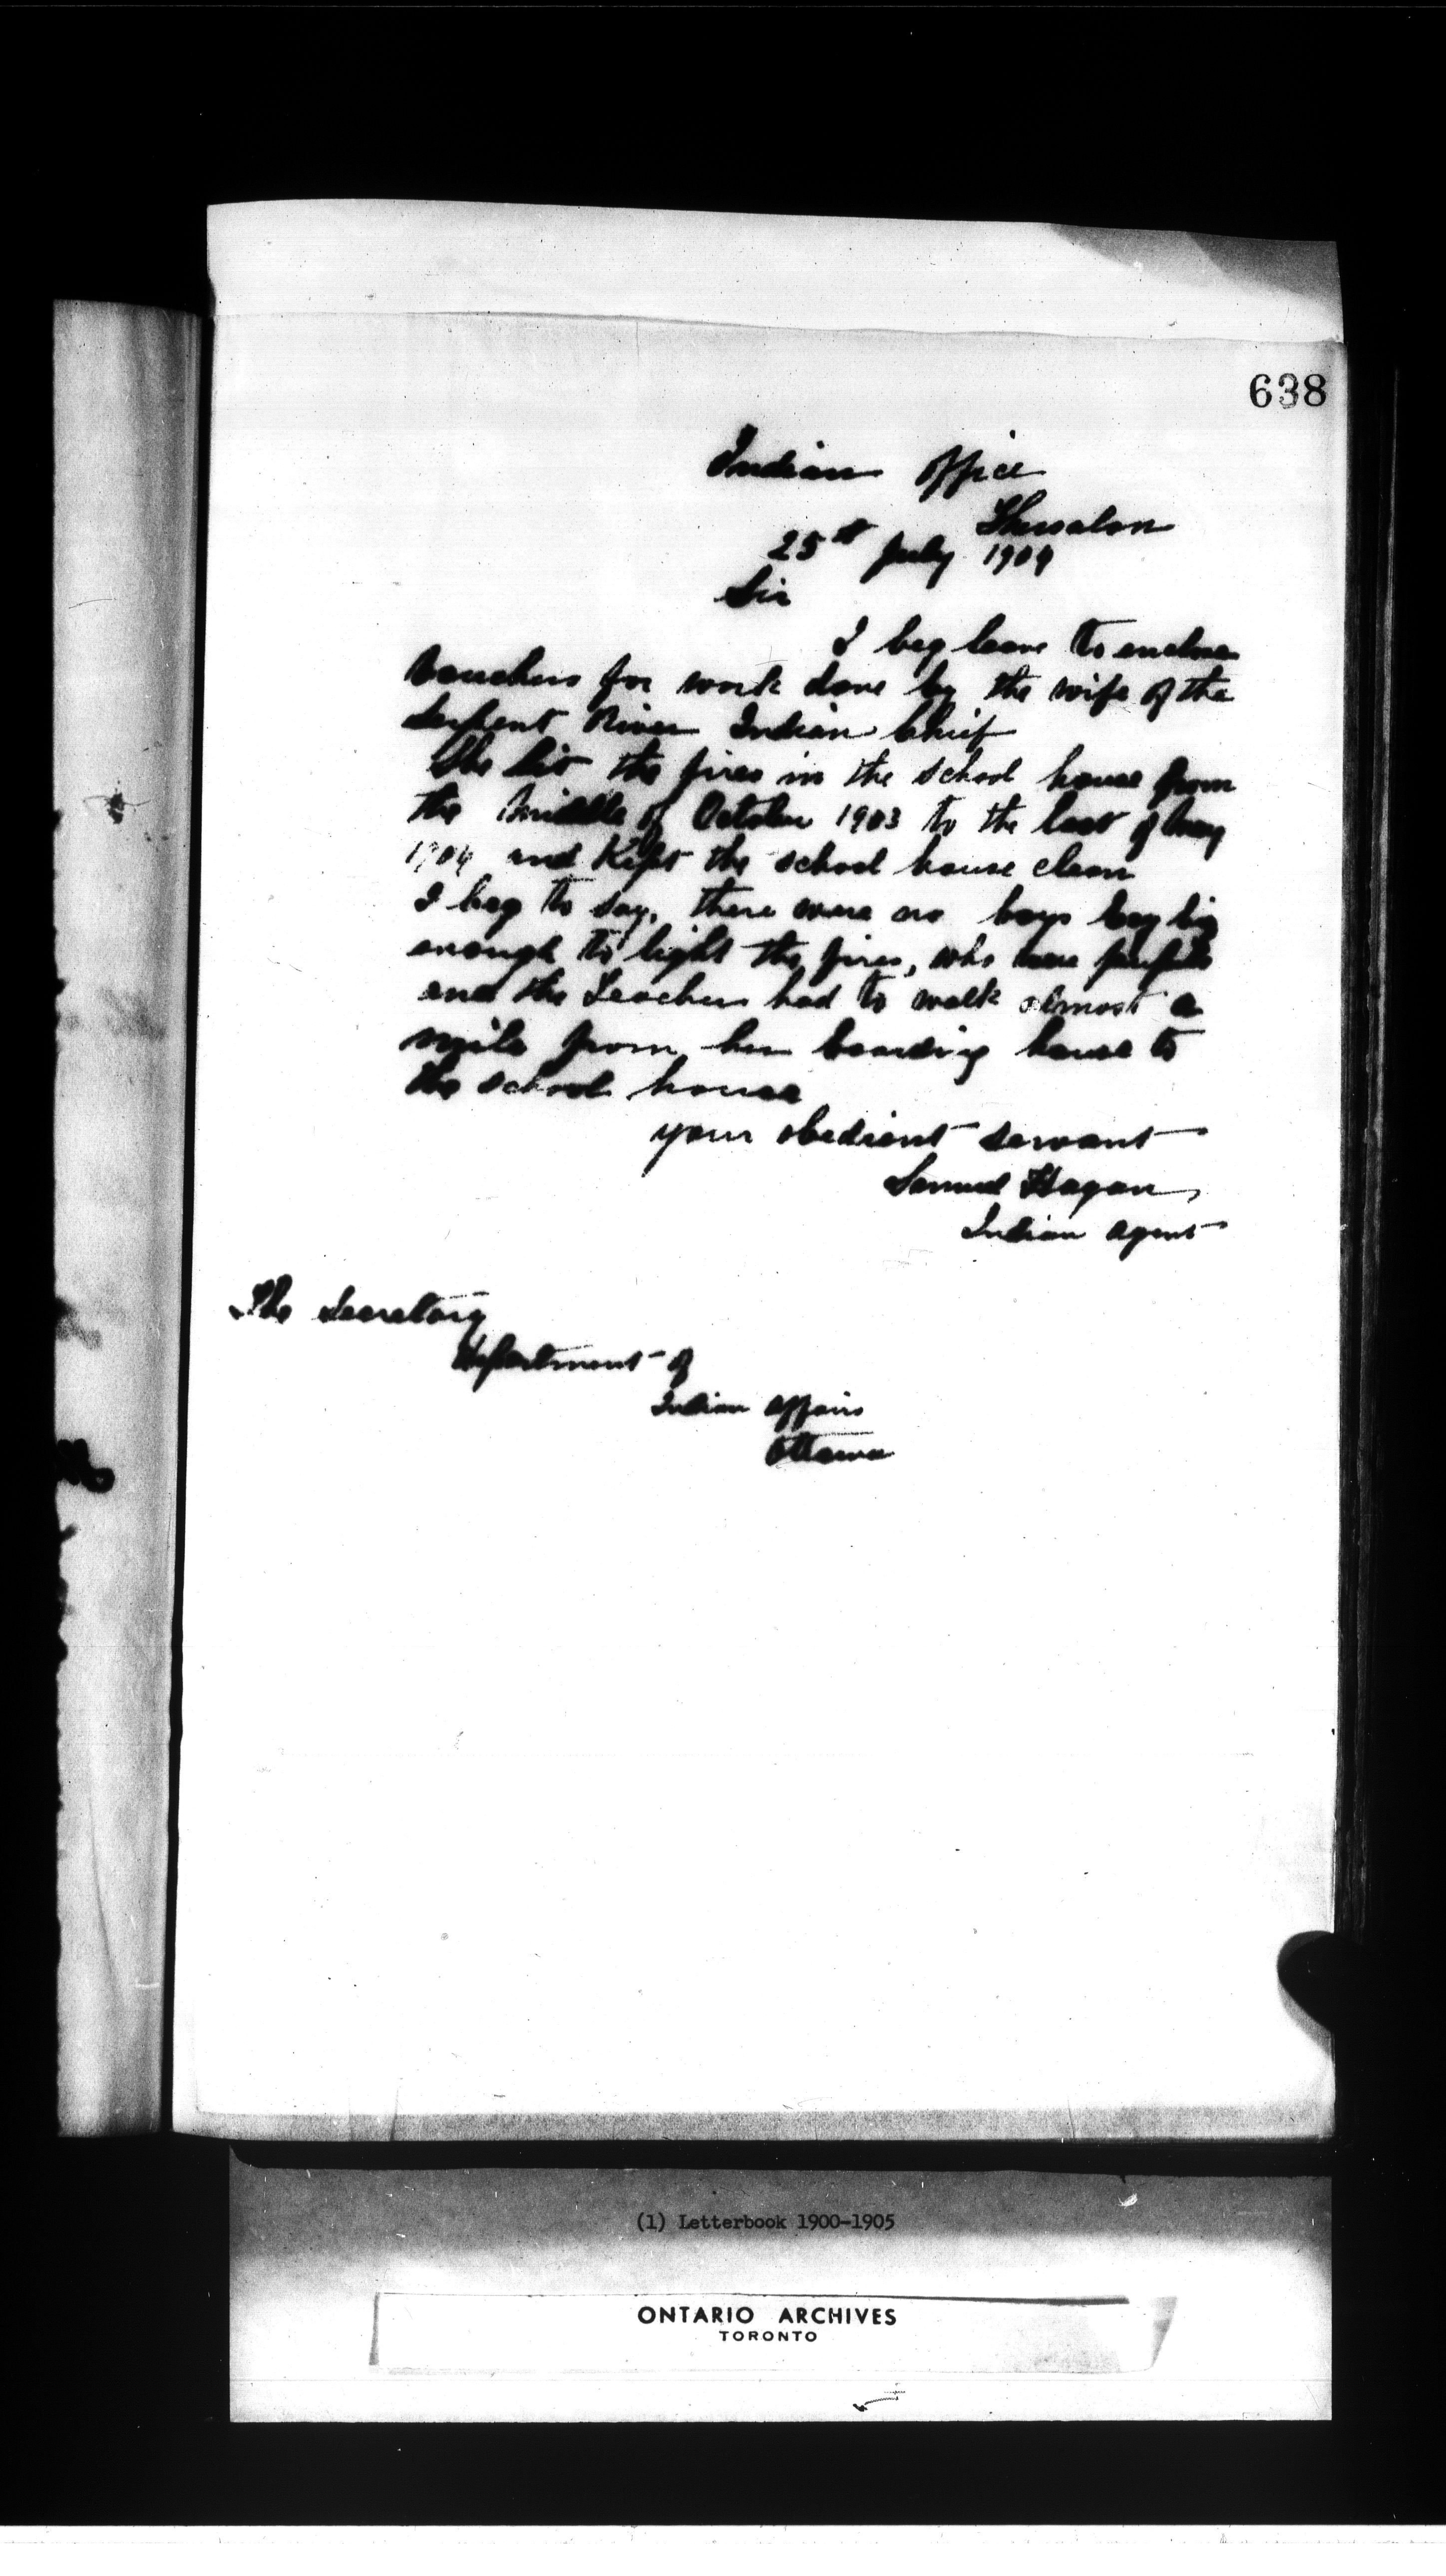 638
Indian Office
Thessalon
25th July 1904
Sir
I beg leave to enclose
Vouchers for work done by the wife of the
Serpent River Indian Chief
She lit the fires in the school house from
the middle of October 1903 to the last of May
1904 and Kept the school house clean
I beg to say, there were no boys big
enough to light the fires, who were pupils
and the Teacher had to walk almost a
mile from her boarding house to
the school house
your obedient servant
Samuel Hagan
Indian Agent
The Secretary
Department of
Indian Affairs
Ottawa
(1) Letterbook 1900-1905
ONTARIO ARCHIVES
TORONTO